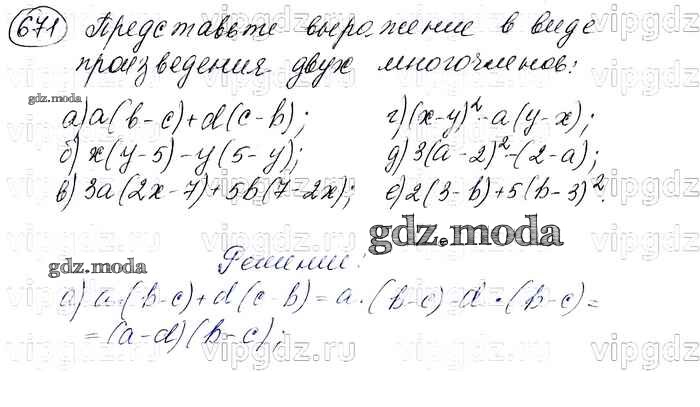 671 Представьте выражение в виде
произведения двух многочленов:
gdz.moda
а) a(b-c)+d(c-b); г) (x-y)²-a(y-x);
б) x(y-5)-y(5-y); д) 3(a-2)²-(2-a);
в) 3a(2x-7)+5b(7-2x); е) 2(3-b)+5(b-3)².
gdz.moda
Решение:
gdz.moda
а) a·(b-c)+d(c-b)=a·(b-c)-d·(b-c)=
=(a-d)(b-c);
vipgdz.ru